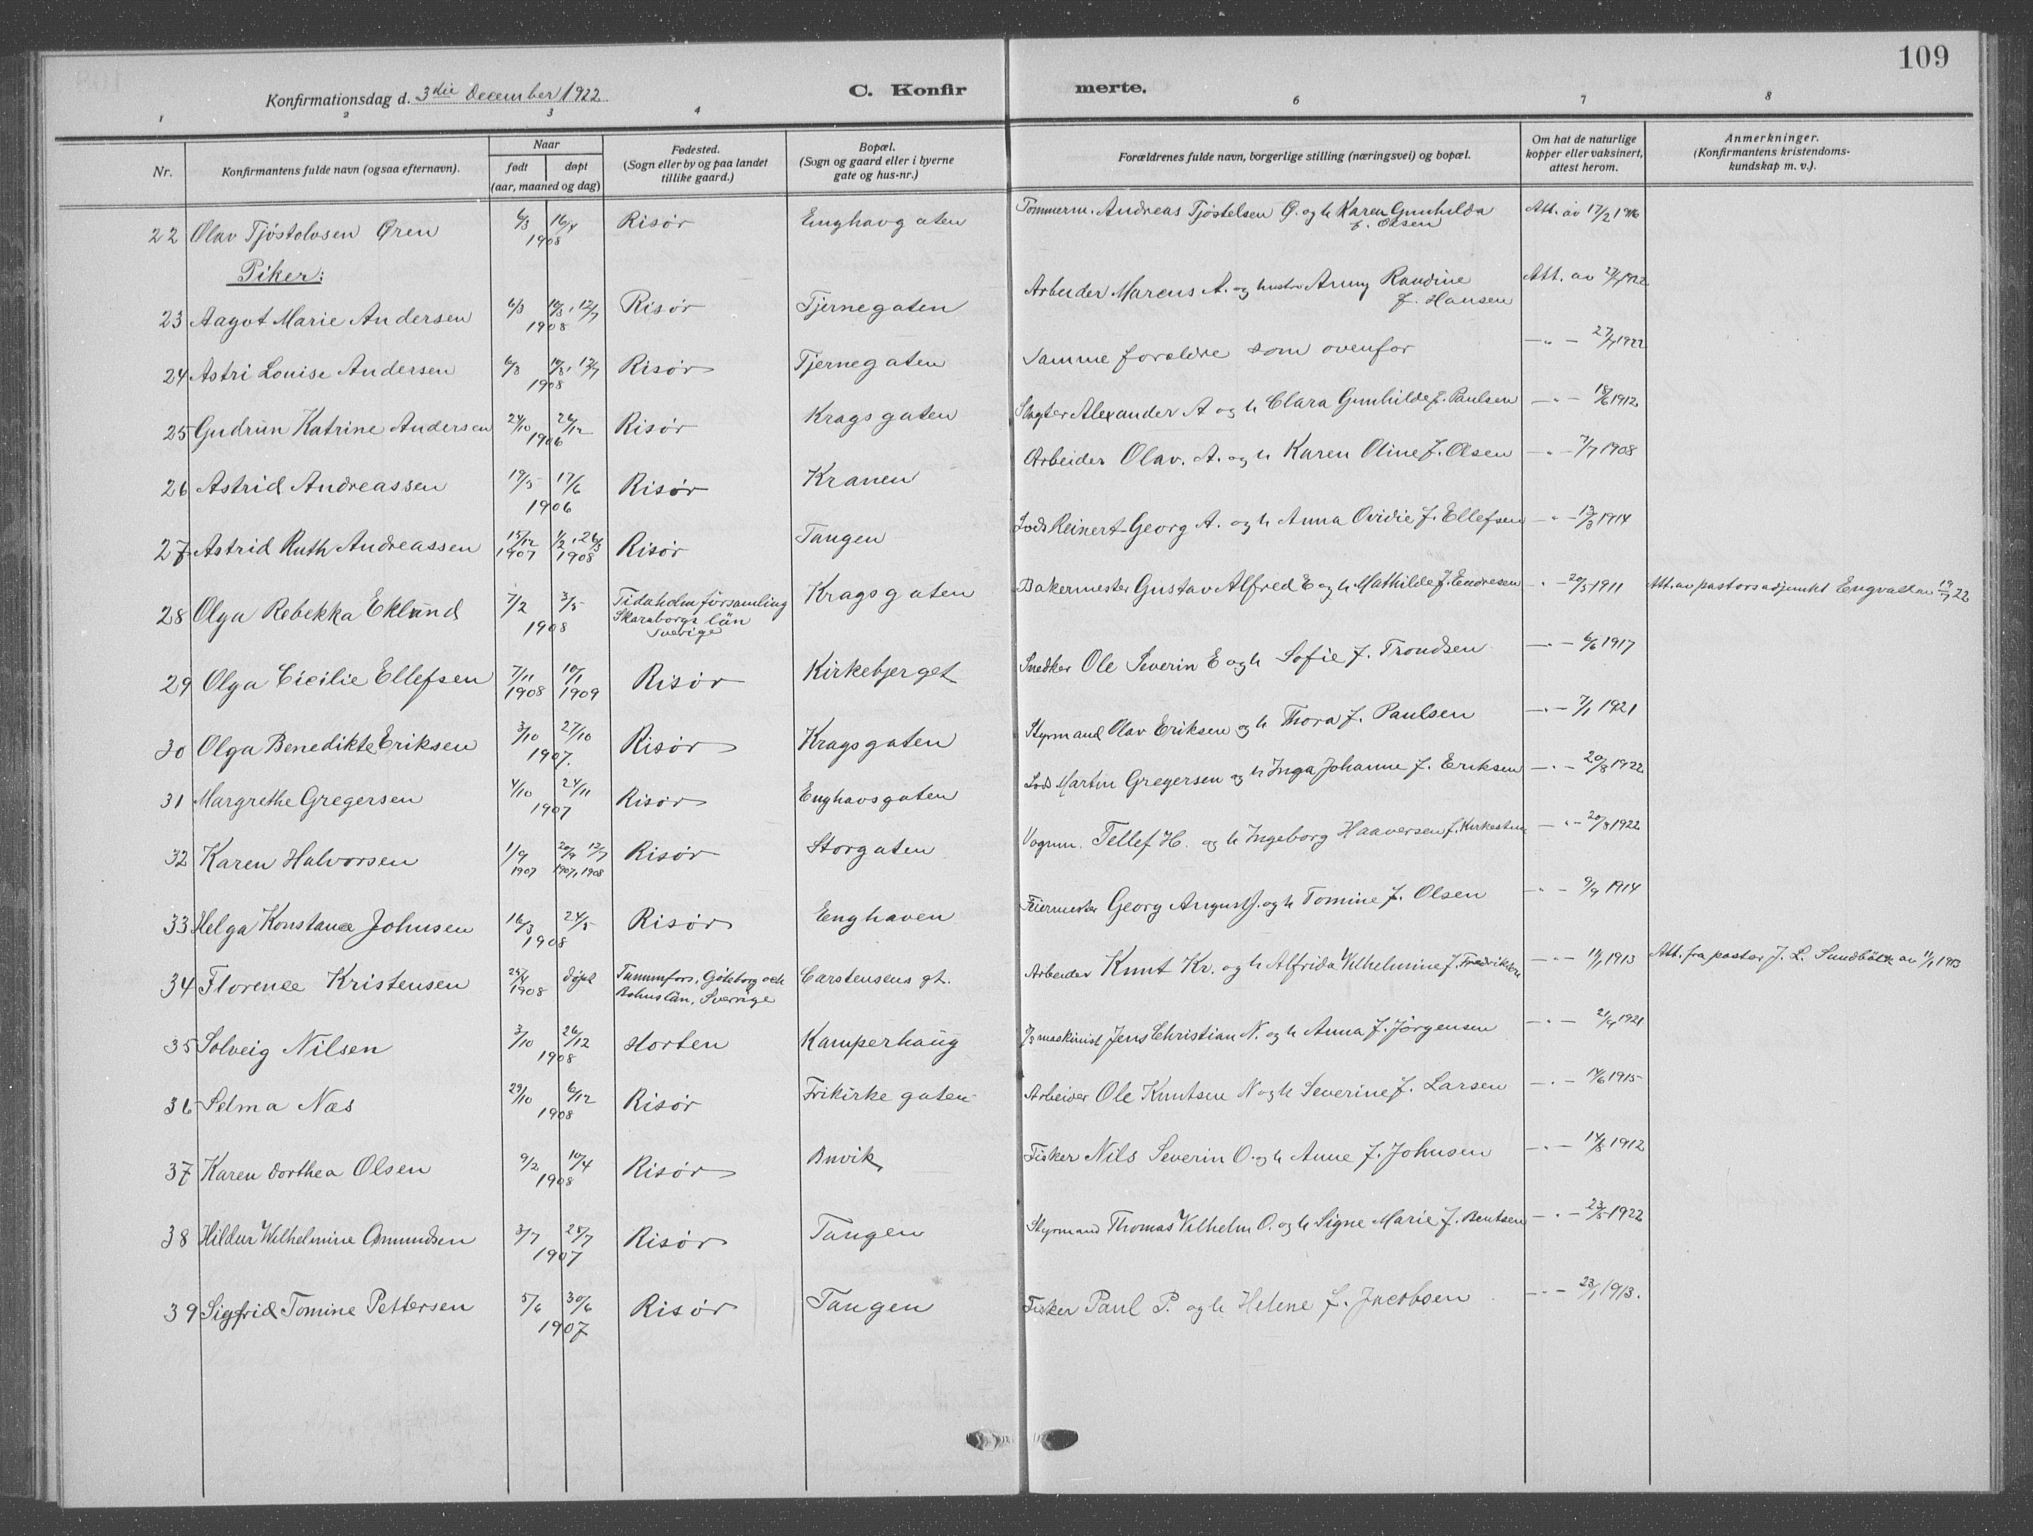 109
Konfirmationsdag d. 3die December 1922
C. Konfirmerte.
1 2 3 4 6 7 8
Nr.
Konfirmantens fulde navn (ogsaa efternavn).
Naar
født døpt
(aar, maaned og dag)
Fødested.
(Sogn eller by og paa landet
tillike gaard.)
Bopæl.
(Sogn og gaard eller i byerne
gate og hus-nr.)
Forældrenes fulde navn, borgerlige stilling (næringsvei) og bopæl.
Om hat de naturlige
kopper eller vaksinert,
attest herom.
Anmerkninger.
(Konfirmantens kristendoms-
kundskap m. v.).
22 Olav Tjøstolvsen Øren 6/3 16/4 1908 Risør Enghavgaten Tømmerm. Andreas Tjøstelsen Ø. og h Karen Gunhilda f. Olsen Att. av 17/2 1916
Piker:
23 Aagot Marie Andersen 6/3 18/3, 12/7 1908 Risør Tjernegaten Arbeider Marcus A. og hustr Anny Randine f. Hansen Att. av 27/7 1922
24 Astri Louise Andersen 6/3 18/3, 12/7 1908 Risør Tjernegaten Samme forældre som ovenfor —"— 27/7 1922
25 Gudrun Katrine Andersen 24/10 26/12 1906 Risør Kragsgaten Slagter Alexander A og h Clara Gunhilde f. Paulsen —"— 18/6 1912
26 Astrid Andreassen 19/5 17/6 1906 Risør Kranen Arbeider Olav. A. og h Karen Oline f. Olsen —"— 7/7 1908
27 Astrid Ruth Andreassen 15/12 1907 1/2, 26/3 1908 Risør Tangen Lods Reinert Georg A. og h Anna Ovidie f. Ellefsen —"— 13/3 1914
28 Olga Rebekka Eklund 7/2 3/5 1908 Tidaholm församling Skaraborgs län Sverige Kragsgaten Bakermester Gustav Alfred E og h Mathilde f. Endresen —"— 20/5 1911 Att. av pastorsadjunkt Engvall av 19/7 22
29 Olga Cicilie Ellefsen 7/11 1908 10/1 1909 Risør Kirkebjerget Snedker Ole Severin E og h Sofie f. Trondsen —"— 6/6 1917
30 Olga Benedikte Eriksen 3/10 27/10 1907. Risør Kragsgaten Styrmand Olav Eriksen og h Thora f. Paulsen —"— 7/1 1921
31 Margrethe Gregersen 4/10 24/11 1907 Risør Enghavsgaten Lods Martin Gregersen og h Inga Johanne f. Eriksen —"— 20/8 1922
32 Karen Halvorsen 1/9 1907 20/9 1907, 12/7 1908 Risør Storgaten Vognm. Tellef H. og h Ingeborg Haaversen f. —"— 20/8 1922
33 Helga Konstance Johnsen 16/3 24/5 1908 Risør Enghaven Feiermester Georg August J. og h Tomine f. Olsen —"— 9/9 1914
34 Florence Kristensen 25/4 1908 døpt Göteborg och Bohuslän, Sverige Carstensens gt. Arbeider Knut Kr. og h Alfrida Vilhelmine f. Fredriksen —"— 11/1 1913 Att. fra pastor J. L. Sundbäck av 11/1 1913
35 Solveig Nilsen 3/10 26/12 1908 Horten Kamperhaug maskinist Jens Christian N. og h Anna f. Jørgensen —"— 21/9 1921
36 Selma Næs 29/10 6/12 1908 Risør Frikirkegaten Arbeider Ole Knutsen N og h Severine f. Larsen —"— 14/6 1915
37 Karen Dorthea Olsen 9/2 10/4 1908 Risør Buvik Fisker Nils Severin O. og h Anne f. Johnsen —"— 14/8 1912
38 Hildur Wilhelmine Osmundsen 3/7 28/7 1907 Risør Tangen Styrmand Thomas Vilhelm O. og h Signe Marie f. Bentsen —"— 23/5 1922
39 Sigfrid Tomine Pettersen 5/6 30/6 1907 Risør Tangen Fisker Paul P. og h Helene f. Jacobsen —"— 23/1 1913.